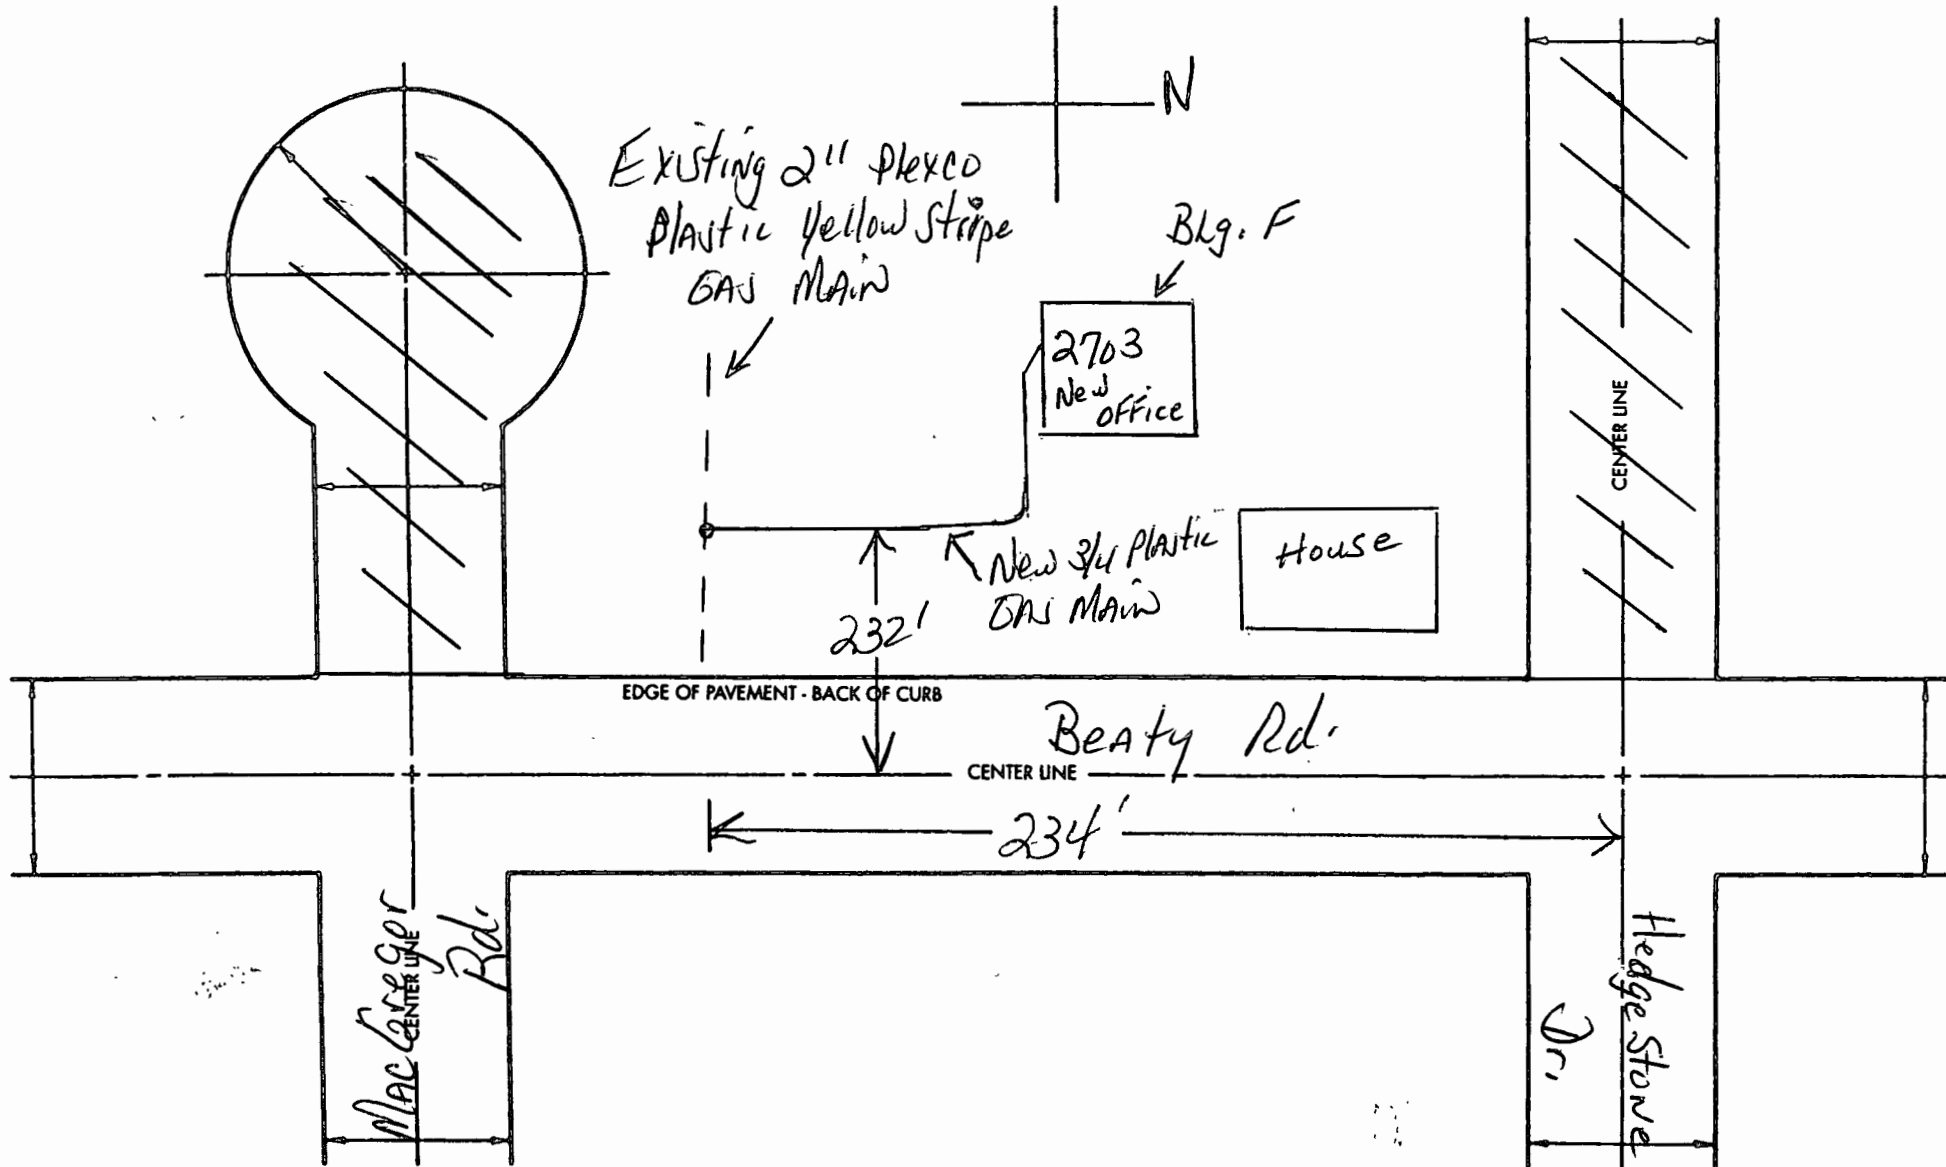 N
Existing 2" Plexco
Plastic Yellow Stripe
GAS MAiN
Blg. F
2703
New
OFFice
CENTER LINE
New 3/4 Plastic
GAS MAiN
House
232'
EDGE OF PAVEMENT - BACK OF CURB
Beaty Rd.
CENTER LINE
234'
MacGregor
Rd.
CENTER LINE
HedgeStone
Dr.